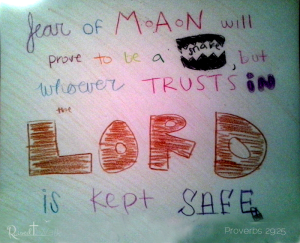 fear of MoAoN will
prove to be a snare, but
whoever TRUSTS in
the
LORD
is kept SAFE.
Proverbs 29:25